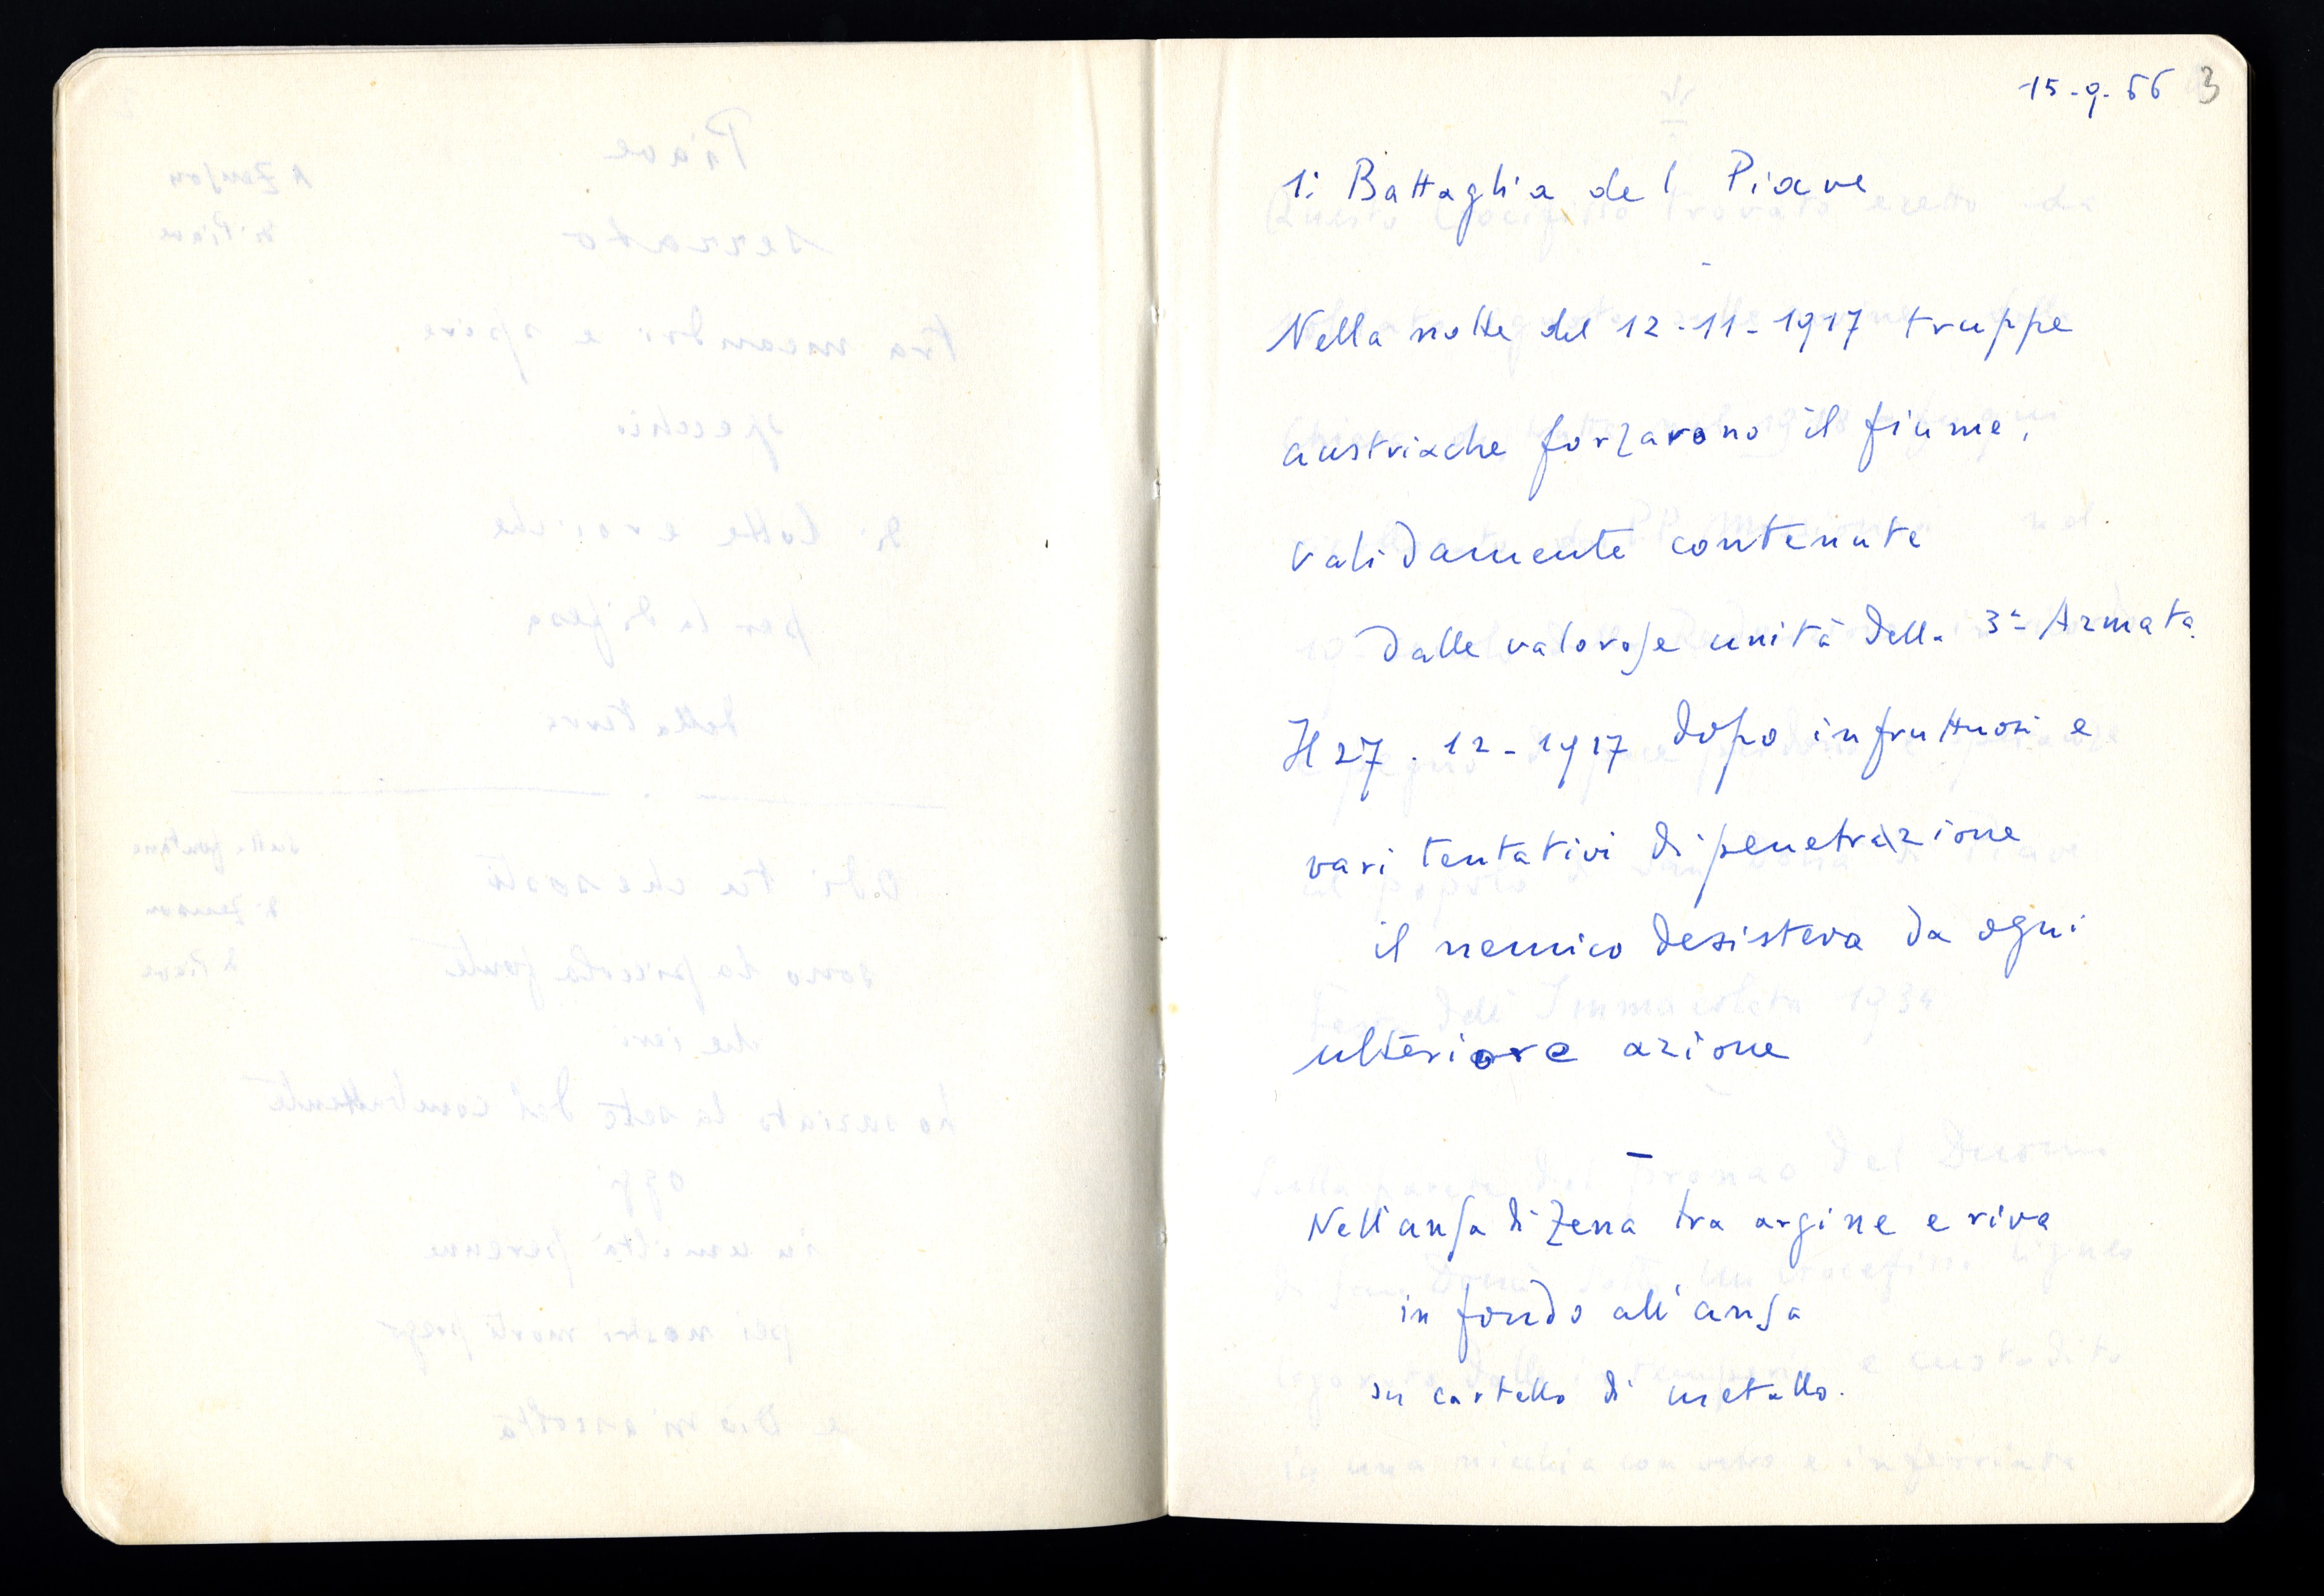 15-9-66 3
1: Battaglia del Piave
Nella notte del 12-11-1917 truppe
austriache forzarono il fiume,
validamente contenute
dalle valorose unità della 3ª Armata.
Il 27.12-1917 dopo infruttuosi e
vari tentativi di penetrazione
il nemico desisteva da ogni
ulteriore azione
–
Nell'ansa di Zena tra argine e riva
in fondo all'ansa
su cartello di metallo.